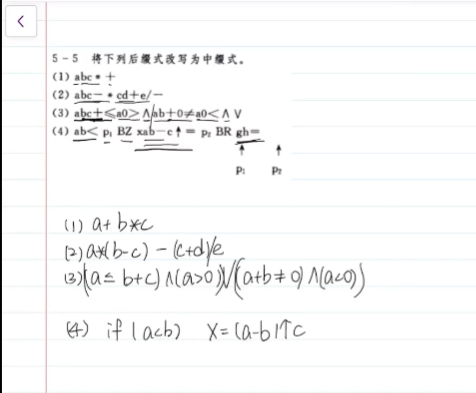 5－5 将下列后缀式改写为中缀式。
(1) abc * +
(2) abc－ * cd+e/－
(3) abc+≤a0> ∧ ab+0≠a0<∧ ∨
(4) ab< p₁ BZ xab－c↑ = p₂ BR gh=
↑ ↑
p₁ p₂
(1) a+b*c
(2) a*(b-c) - (c+d)/e
(3) (a≤b+c) ∧ (a>0)) ∨ (a+b≠0) ∧ (a<0))
(4) if (a<b) X=(a-b)↑c